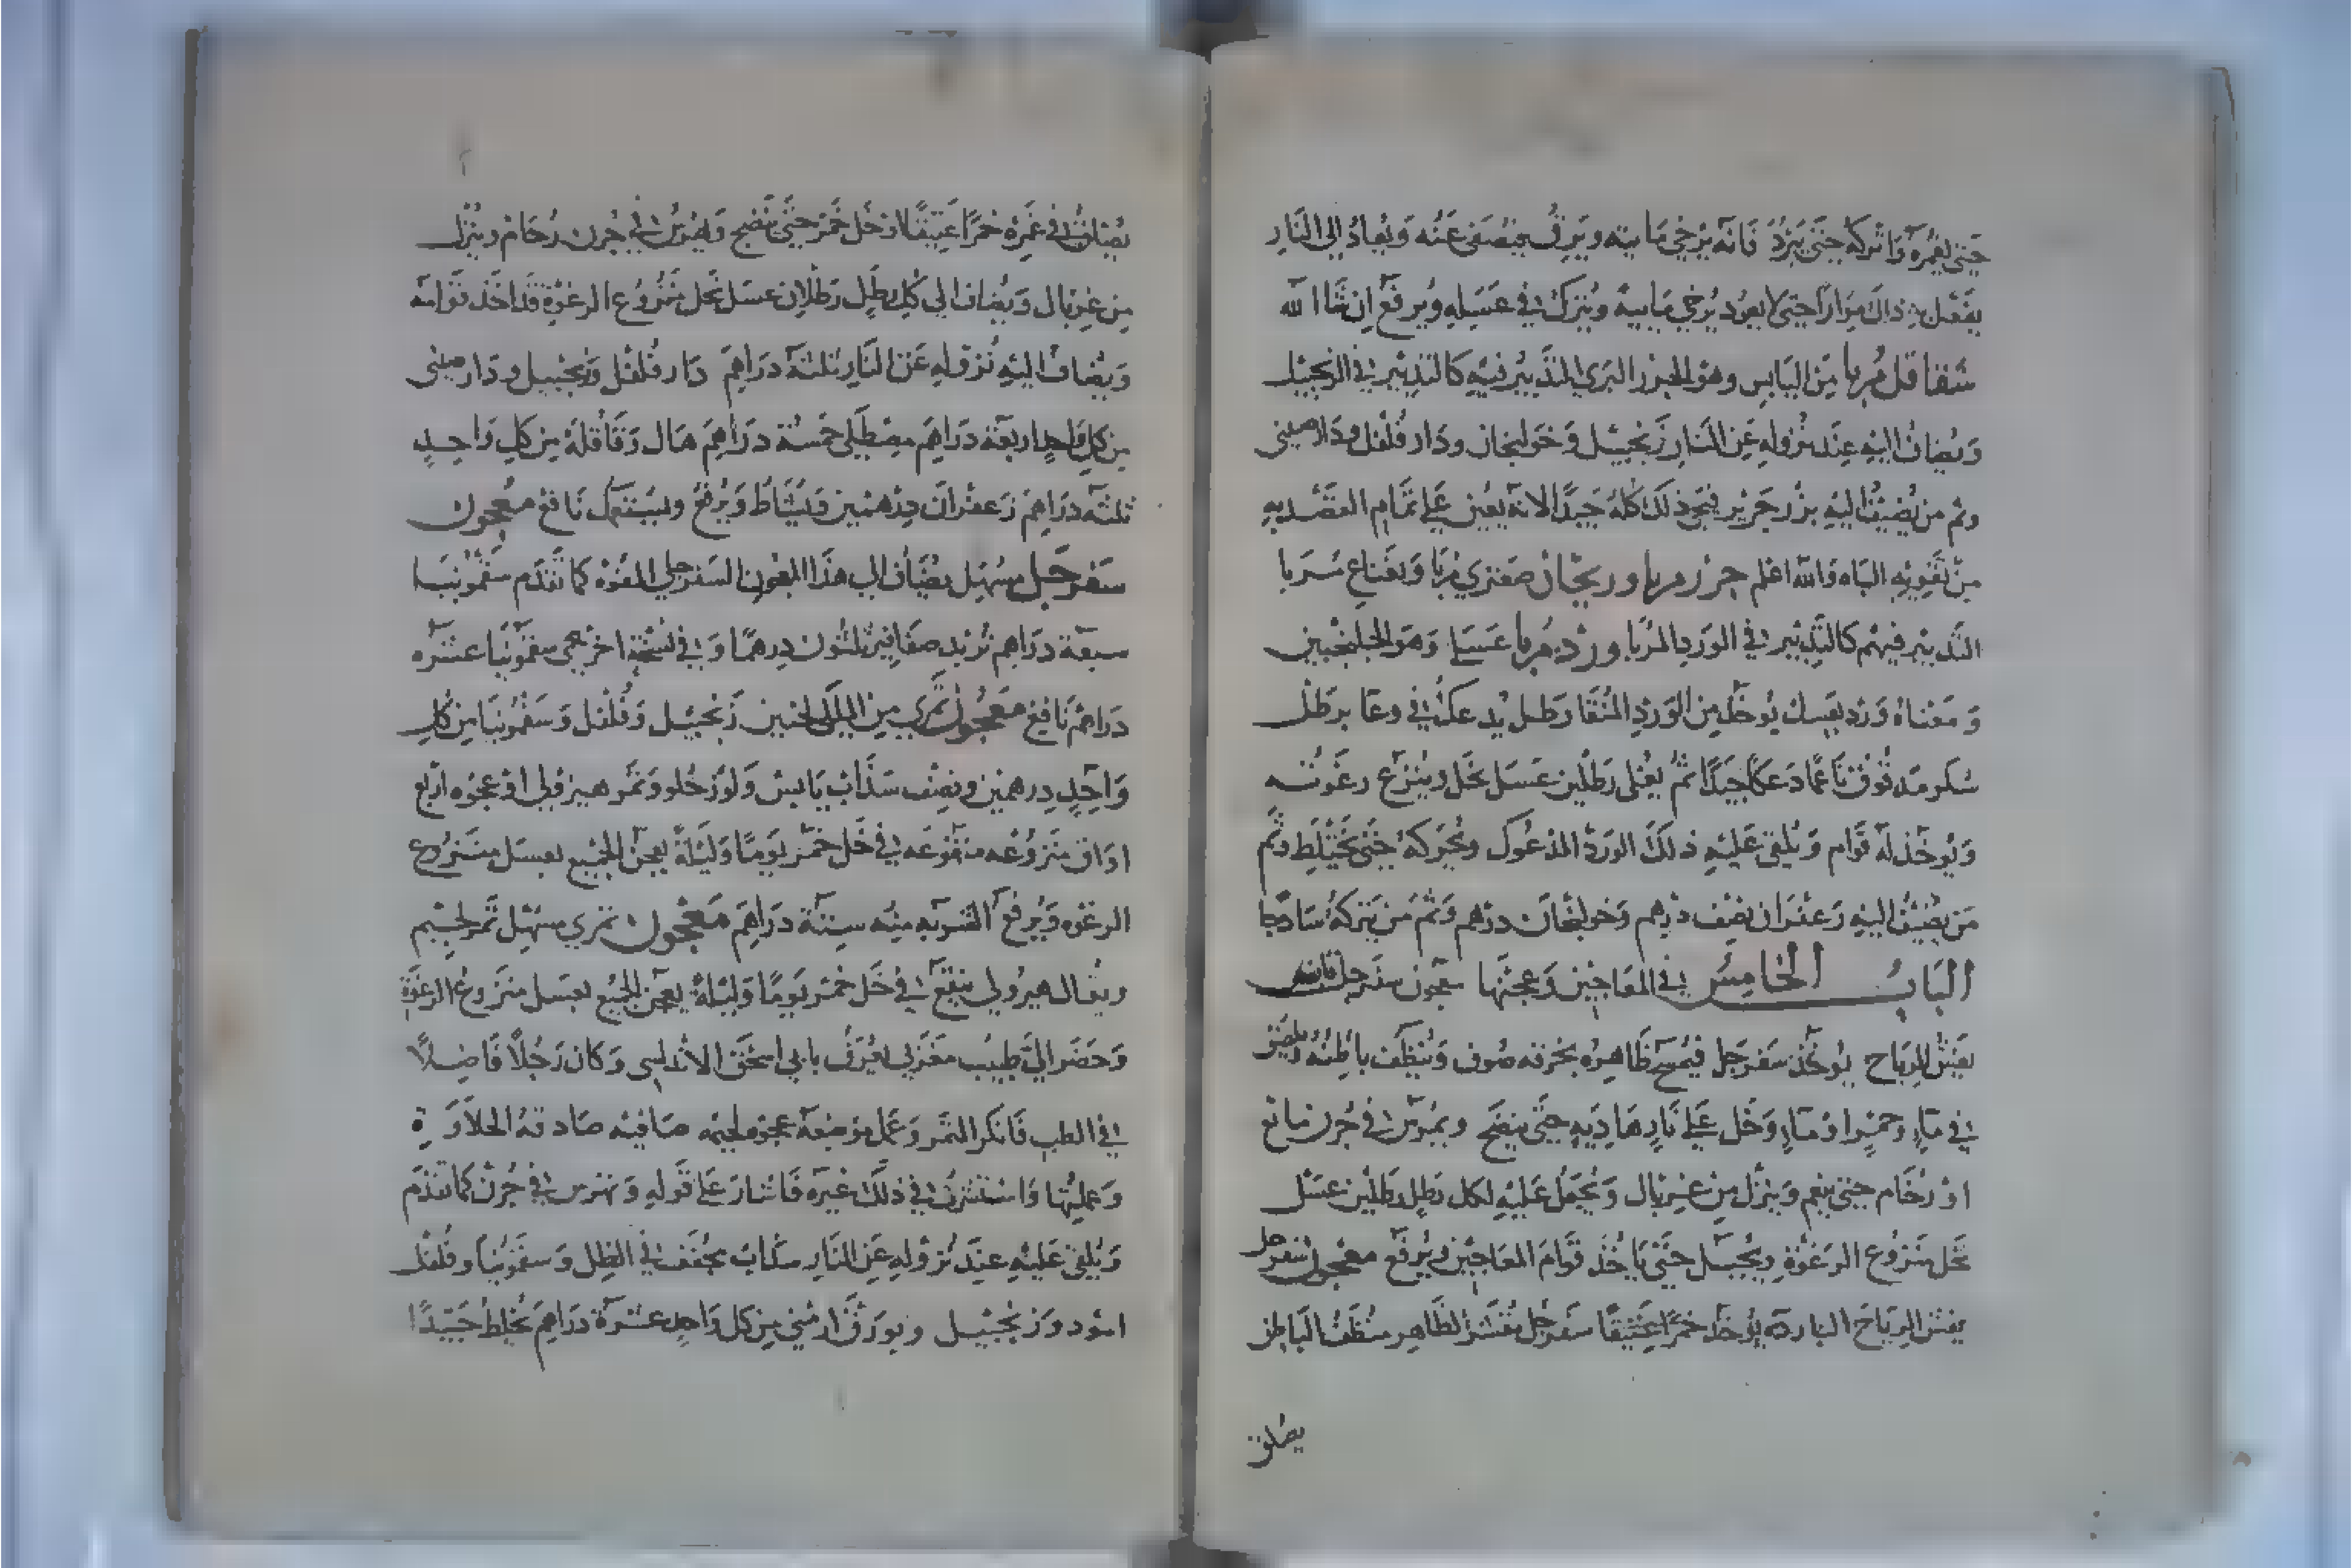 حَتى يغمُره وَاتركه حَتى يَبْرُد فَانه يرْخي مَا ييته ويَرِق فيُصَفى عَنْه وَيُعَادُ الى النَار
يفعَل به ذلك مِرَارًا حتى لا يعوُد يُرْخي مَاييه ويُترك في عَسَله ويُرفَع ان شَا الله
شقاقل مُربا مِن اليَابِس وهو الجزر البَري التَدبيرُ فيه كالتدبير في الزنجبيل
وَيُضاف اليهِ عند نزوله عَن النار زَنجبيل وَخولنجان ودَار فُلفل ودَار صيني
وثم من يُضيفُ اليهِ بزر جَرْير فيَجي ذلك كله جَيدًا لانه يُعين عَلى تمَامِ القصْد به
مِن تقويةِ البَاه وَالله اعلم جزر مربا وريحان صعتري مُربا وَنعناع مُرَبا
التَدبير فيهم كالتدبير في الوَردِ المُربا ورد مُربا عَسَل وَهو الجلنجبين
وَمَعناهُ وَرْد بعسل يُوخَذ مِن الوَردِ المُنقا رَطل يُدعك في وعَا برَطل
سُكر مَدقوُق نَاعمًا دَعكًا جَيدًا ثُم يُغلى رَطلين عَسَل نحَل ويُنزَع رغوته
وَيُوخَذ له قَوام وَيُلقى عَليهِ ذلكَ الوَرْد المدْعُوك ويُحَركهُ حَتى يَختلِط وثم
مَن يُضيفُ اليهِ زَعفَران نصْف درْهم وَخولنجان درْهم وَثم مَن يَتركهُ سَادجًا
البَابُ الخَامِسُ في المعَاجِين وَعجنِهَا معجون سفرجل
يفش الرياح يُوخَذ سَفرجَل فيُمسَح ظَاهِرُه بخرقه صُوف وَيُنظف باطنُهُ ويُصلق
في مَاءٍ وخمْرٍ او مَاءٍ وَخَل عَلى نَارٍ هَادِيَه حَتى ينضَج ويُهرَس في جُرن مانع
اوْ رخَام حَتى ينعم وَينزَل مِن غربَال وَيُجعَل عَليهِ لكل رطلٍ رَطلين عَسَل
نحل منزوع الرغوَةِ ويُجبَل حَتى يَاخُذ قَوامَ المعَاجين ويُرفَع معجون سَفرجل
يفش الرِيَاحَ البَارده يُوخَذ خمرًا عَتيقًا سَفرجَل مُقشر الظَاهِر منظفُ البَاطِن
يصلق
يُصلق في غَمره خمرًا عَتيقًا او خَل خَمر حَتى ينضج وَيُهرَس في جُرن رُخَام ويُنزل
مِن غربَال وَيُضاف الي كل رطلٍ رَطلان عسَل نحل منزُوع الرغوَةِ قَد اخَذ قوامَه
وَيُضاف اليهِ نُزوله عَن النَار ثلثَة دَراهِم دَار فُلفُل وَزنجبيل ودَار صيني
مِن كل وَاحدٍ اربعَة دَرَاهَم مصْطَكى خمسَة دَرَاهم هَال وَقَاقلة مِن كل وَاحِدٍ
ثلثه دَراهِم زَعفران درهمين وَيُسَاط وَيُرْفع ويُسْتعمَل نَافع معجون
سَفرجَل مسهل يُضاف الي هذَا المعجون السَفرجلي المقَوه كما تقدَم سقمونيَا
سبعَة دَراهِم تُربد صفَائح ثلثون درهمًا وَفي نسُخة اخرجي سقمونيَا عشره
دَراهِم نَافع مَعجون تمري مِن المَلكي لحنين زَنجبيل وَفُلفل وَسَقمُونيَا مِن كلِ
وَاحِدٍ درهمين ونصْف سَذاب يَابس وَلوز حُلو وَتمر هيروني او عجوُه اربَع
اوَاق مَنزوُعه منقوُعَه في خَل خمر يَومًا وَليلَة يُعجن الجميع بعسل منزوع
الرغوَه وَيُرفَع الشربه مِنه ستة دَرَاهَم مَعجون تمري مسْهِل تمر لحيم
ويُقال هيروني ينقَع في خَل خَمر يَومًا وَليلةً يعجن الجميع بعسَل منزوع الرغوَة
وَحَضَر اليَ طبيب مغَربي يُعرف بابي اسحَق الاندلسي وَكان رَجُلا فَاضِلًا
في الطب فَانكر التمر وَعَمل مَوضعَه عَجوه لحيمه صَافيه صَادقة الحلاوَة
وَعملتها وَاستشرت في ذلك غَيره فَاشارَ عَلى قَولهِ وَتهرس في جُرن كما تقدَم
وَيُلقى عَليْهِ عند نزوله عَن النَارِ سذَاب مجفف في الظل وَسقمونيَا وفُلفل
اسْود وَزنجبيل وبورَق ارمني مِن كل وَاحِد عشرَة دَرَاهِم يُخلط جَيدًا